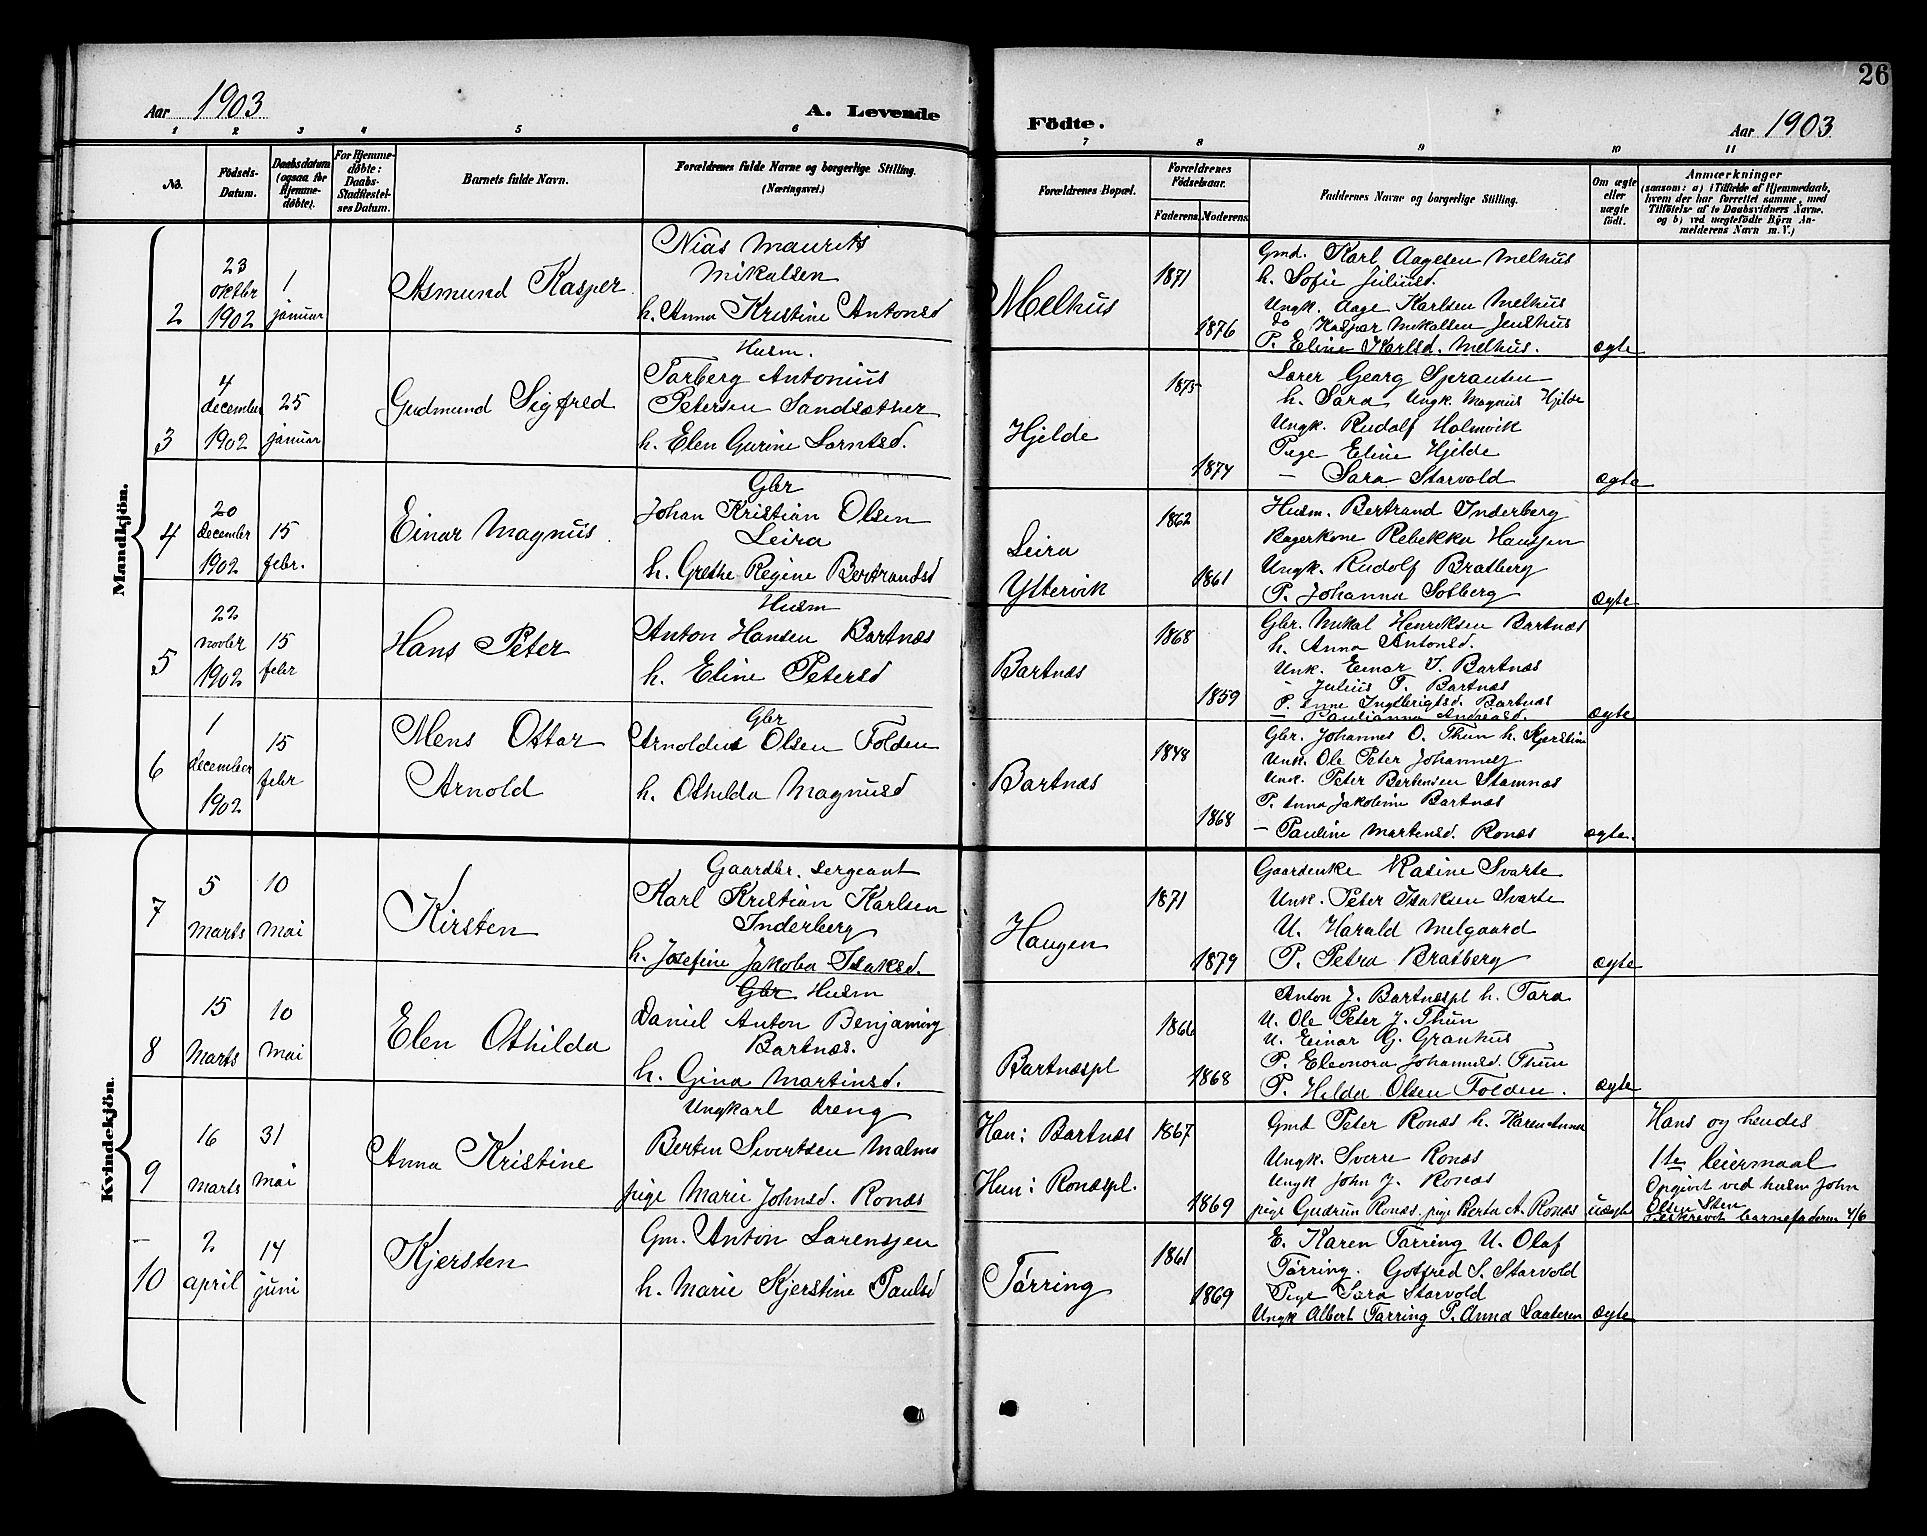 26
Aar 1903
A. Levende
Födte.
Aar 1903
1 2 3 4 5 6 7 8 9 10 11
No.
Födsels-
Datum.
Daabsdatum
(ogsaa for
Hjemme-
døbte).
For Hjemme-
døbte:
Daabs-
Stadfæstel-
ses Datum.
Barnets fulde Navn.
Forældrenes fulde Navne og borgerlige Stilling.
(Næringsvei.)
Forældrenes Bopæl.
Forældrenes
Födselsaar.
Faderens. Moderens.
Faddernes Navne og borgerlige Stilling.
Om ægte
eller
uægte
født.
Anmærkninger
(saasom: a) i Tilfælde af Hjemmedaab,
hvem der har forrettet samme, med
Tilföielse af to Daabsvidners Navne,
og b) ved uægtefødte Börn An-
melderens Navn m. V.)
Mandkjön.
2
23
oktbr
1902
1
januar
Asmund Kasper
Nias Maurits
Mikalsen
h. Anna Kristine Antonsd
Melhus
1871
1876
Gmd. Karl Aagesen Melhus
h. Sofie Juliusd.
Ungk. Aage Karlsen Melhus
do Kaspar Mikalsen Jenshus
P. Eline Karlsd. Melhus.
ægte
3
4
december
1902
25
januar
Gudmund Sigfred
Husm.
Torberg Antonius
Petersen Sandsæther
h. Elen Gurine Lorntsd.
Hjelde
1875
1874
Lærer Georg Sprauten
h. Sara Ungk. Magnus Hjelde
Ungk. Rudolf Holmvik
Pige Eline Hjelde
— Sara Starvold
ægte
4
20
december
1902
15
febr.
Einar Magnus
Gbr
Johan Kristian Olsen
Leira
h. Grethe Regine Bertrandsd
Leira
Yttervik
1862
1861
Husm. Bertrand Inderberg
Bagerkone Rebekka Hanssen
Ungk. Rudolf Bratberg
P. Johanna Solberg
ægte
5
22
novbr
1902
15
febr
Hans Peter
Husm
Anton Hansen Bartnæs
h. Eline Petersd
Bartnæs
1868
1859
Gbr. Mikal Henriksen Bartnæs
h. Anna Antonsd.
Unk. Einar J. Bartnæs
- Julius T. Bartnæs
P. Anne Ingebrigtsd. Bartnæs
— Paulianna Andreasd.
ægte
6
1
december
1902
15
febr
Mens Ottar
Arnold
Gbr
Arnoldus Olsen Folden
h. Othilda Magnusd
Bartnæs
1848
1868
Gbr. Johannes O. Thun h. Kjerstine
Unk. Ole Peter Johannes
Unk. Peter Berntsen Stamnæs
P. Anna Jakobine Bartnæs
— Pauline Martensd. Ronæs
ægte.
Kvindekjön.
7
5
marts
10
mai
Kirsten
Gaardbr. Sergeant
Karl Kristian Karlsen
Inderberg
h. Josefine Jakoba Isaksd.
Haugen
1871
1879
Gaardenke Rasine Svarte
Unk. Peter Isaksen Svarte
U. Harald Melgaard
P. Petra Bratberg
ægte
8
15
Marts
10
mai
Elen Othilda
Gbr Husm
Daniel Anton Benjamins
Bartnæs.
h. Gina Martinsd.
Bartnæspl
1866
1868
Anton J. Bartnæspl h. Tara
U. Ole Peter J. Thun
U. Einar G. Granhus
P. Eleonora Johannesd. Thun
P. Hilda Olsen Folden.
ægte
9
16
marts
31
mai
Anna Kristine
Ungkarl dreng
Bertin Sivertsen Malmo
pige Marie Johnsd. Ronæs
Han: Bartnæs
Hun: Ronæspl.
1867
1869
Gmd Peter Ronæs h. Karen Anna
Ungk. Sverre Ronæs
Ungk John J. Ronæs
pige Gudrun Ronæs. pige Berta A. Ronæs
uægte
Hans og hendes
1ste leiermaal
Opgivet ved husm John
Olsen Sten
barnefaderen 4/6
10
2
april
14
juni
Kjersten
Gm. Anton Lorensen
h. Marie Kjerstine Paulsd
Tørring
1861
1869
E. Karen Tørring U. Olaf
Tørring. Gotfred S. Starvold
Pige Sara Starvold
Ungk Albert Tørring P. Anna Laateren
ægte